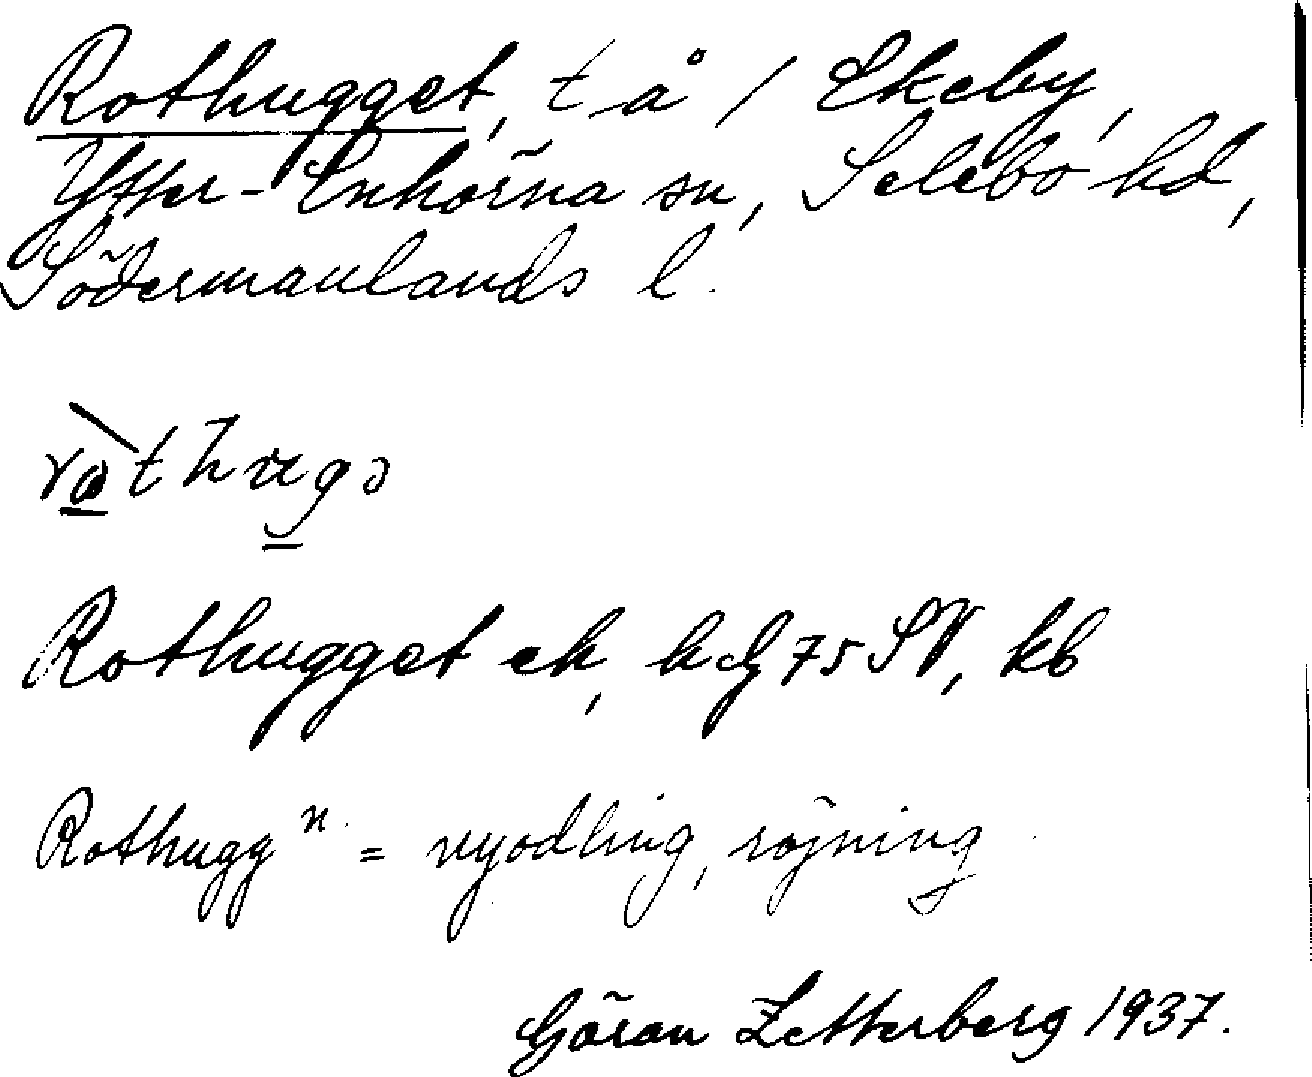 Rothugget, t å / Ekeby,
Ytter-Enhörna sn, Selebo hd,
Södermanlands l.
ròthugə
Rothugget ek, hfg 75 SV, kb
Rothugg n. = nyodling, röjning
Göran Zetterberg 1937.